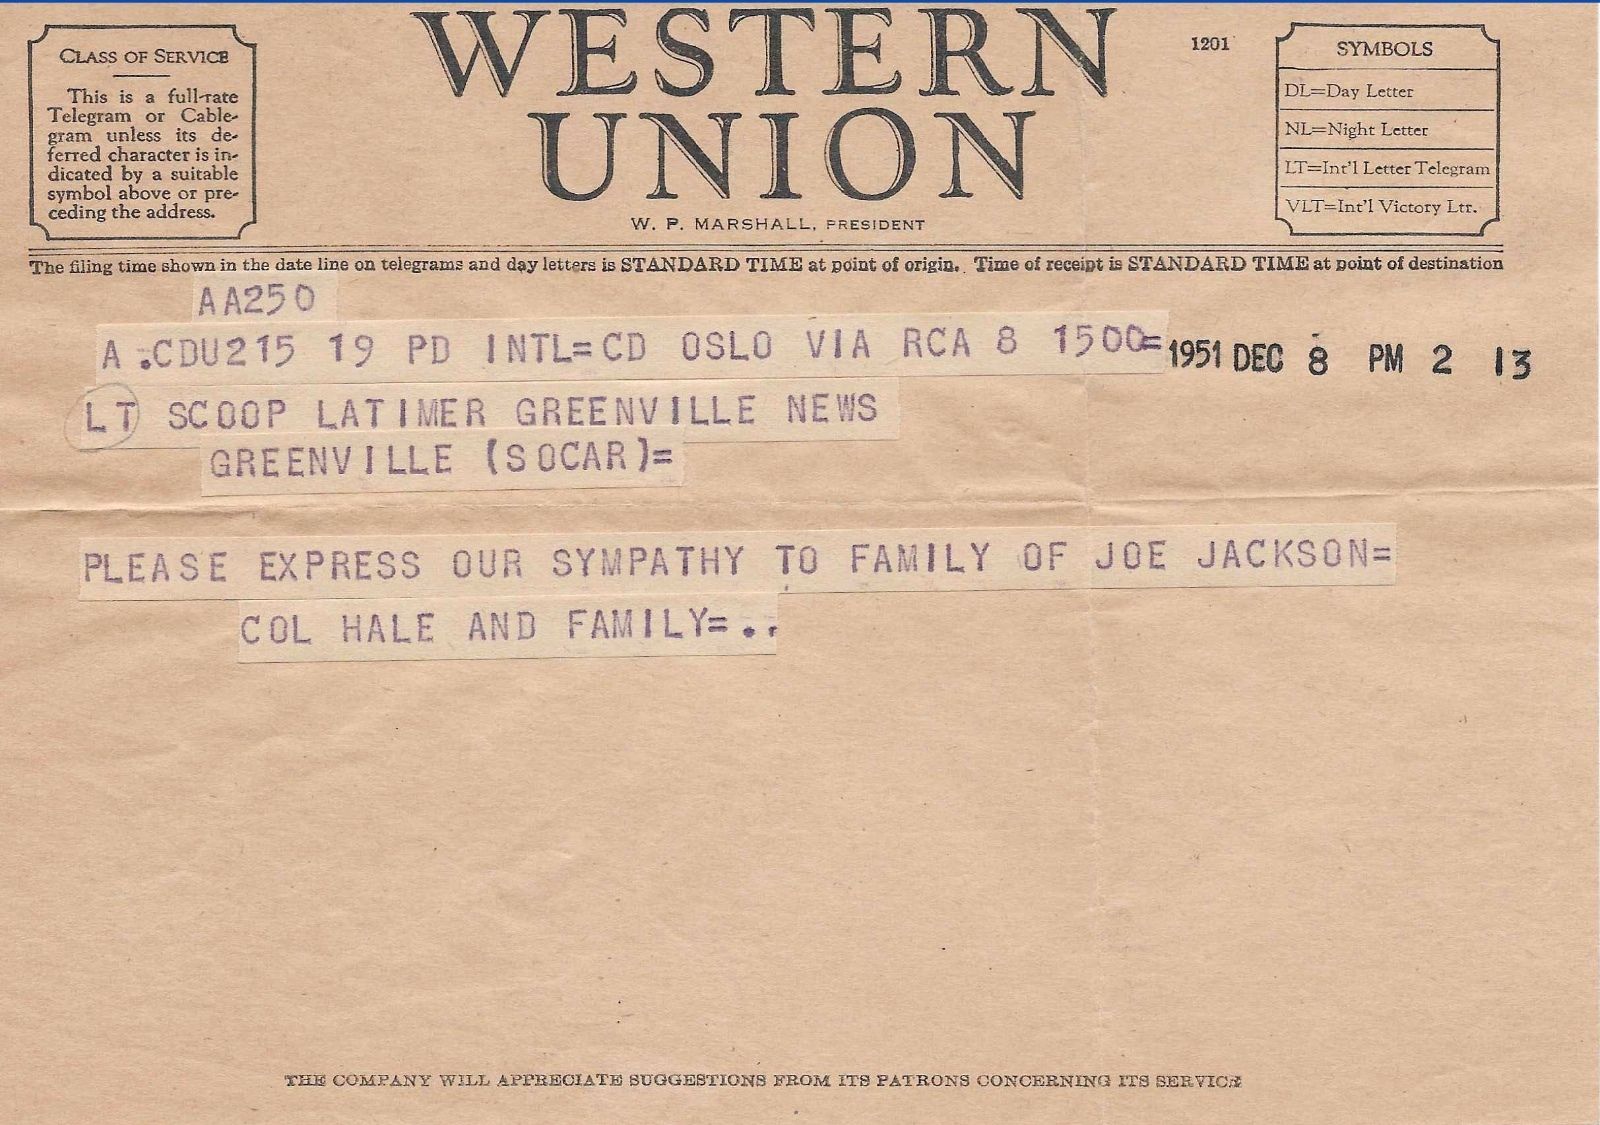 CLASS OF SERVICE
This is a full-rate
Telegram or Cable-
gram unless its de-
ferred character is in-
dicated by a suitable
symbol above or pre-
ceding the address.
WESTERN
UNION
W. P. MARSHALL, PRESIDENT
1201
SYMBOLS
DL=Day Letter
NL=Night Letter
LT=Int'l Letter Telegram
VLT=Int'l Victory Ltr.
The filing time shown in the date line on telegrams and day letters is STANDARD TIME at point of origin. Time of receipt is STANDARD TIME at point of destination
AA250
A .CDU215 19 PD INTL=CD OSLO VIA RCA 8 1500=
1951 DEC 8 PM 2 13
LT SCOOP LATIMER GREENVILLE NEWS
GREENVILLE (SOCAR)=
PLEASE EXPRESS OUR SYMPATHY TO FAMILY OF JOE JACKSON=
COL HALE AND FAMILY=..
THE COMPANY WILL APPRECIATE SUGGESTIONS FROM ITS PATRONS CONCERNING ITS SERVICE